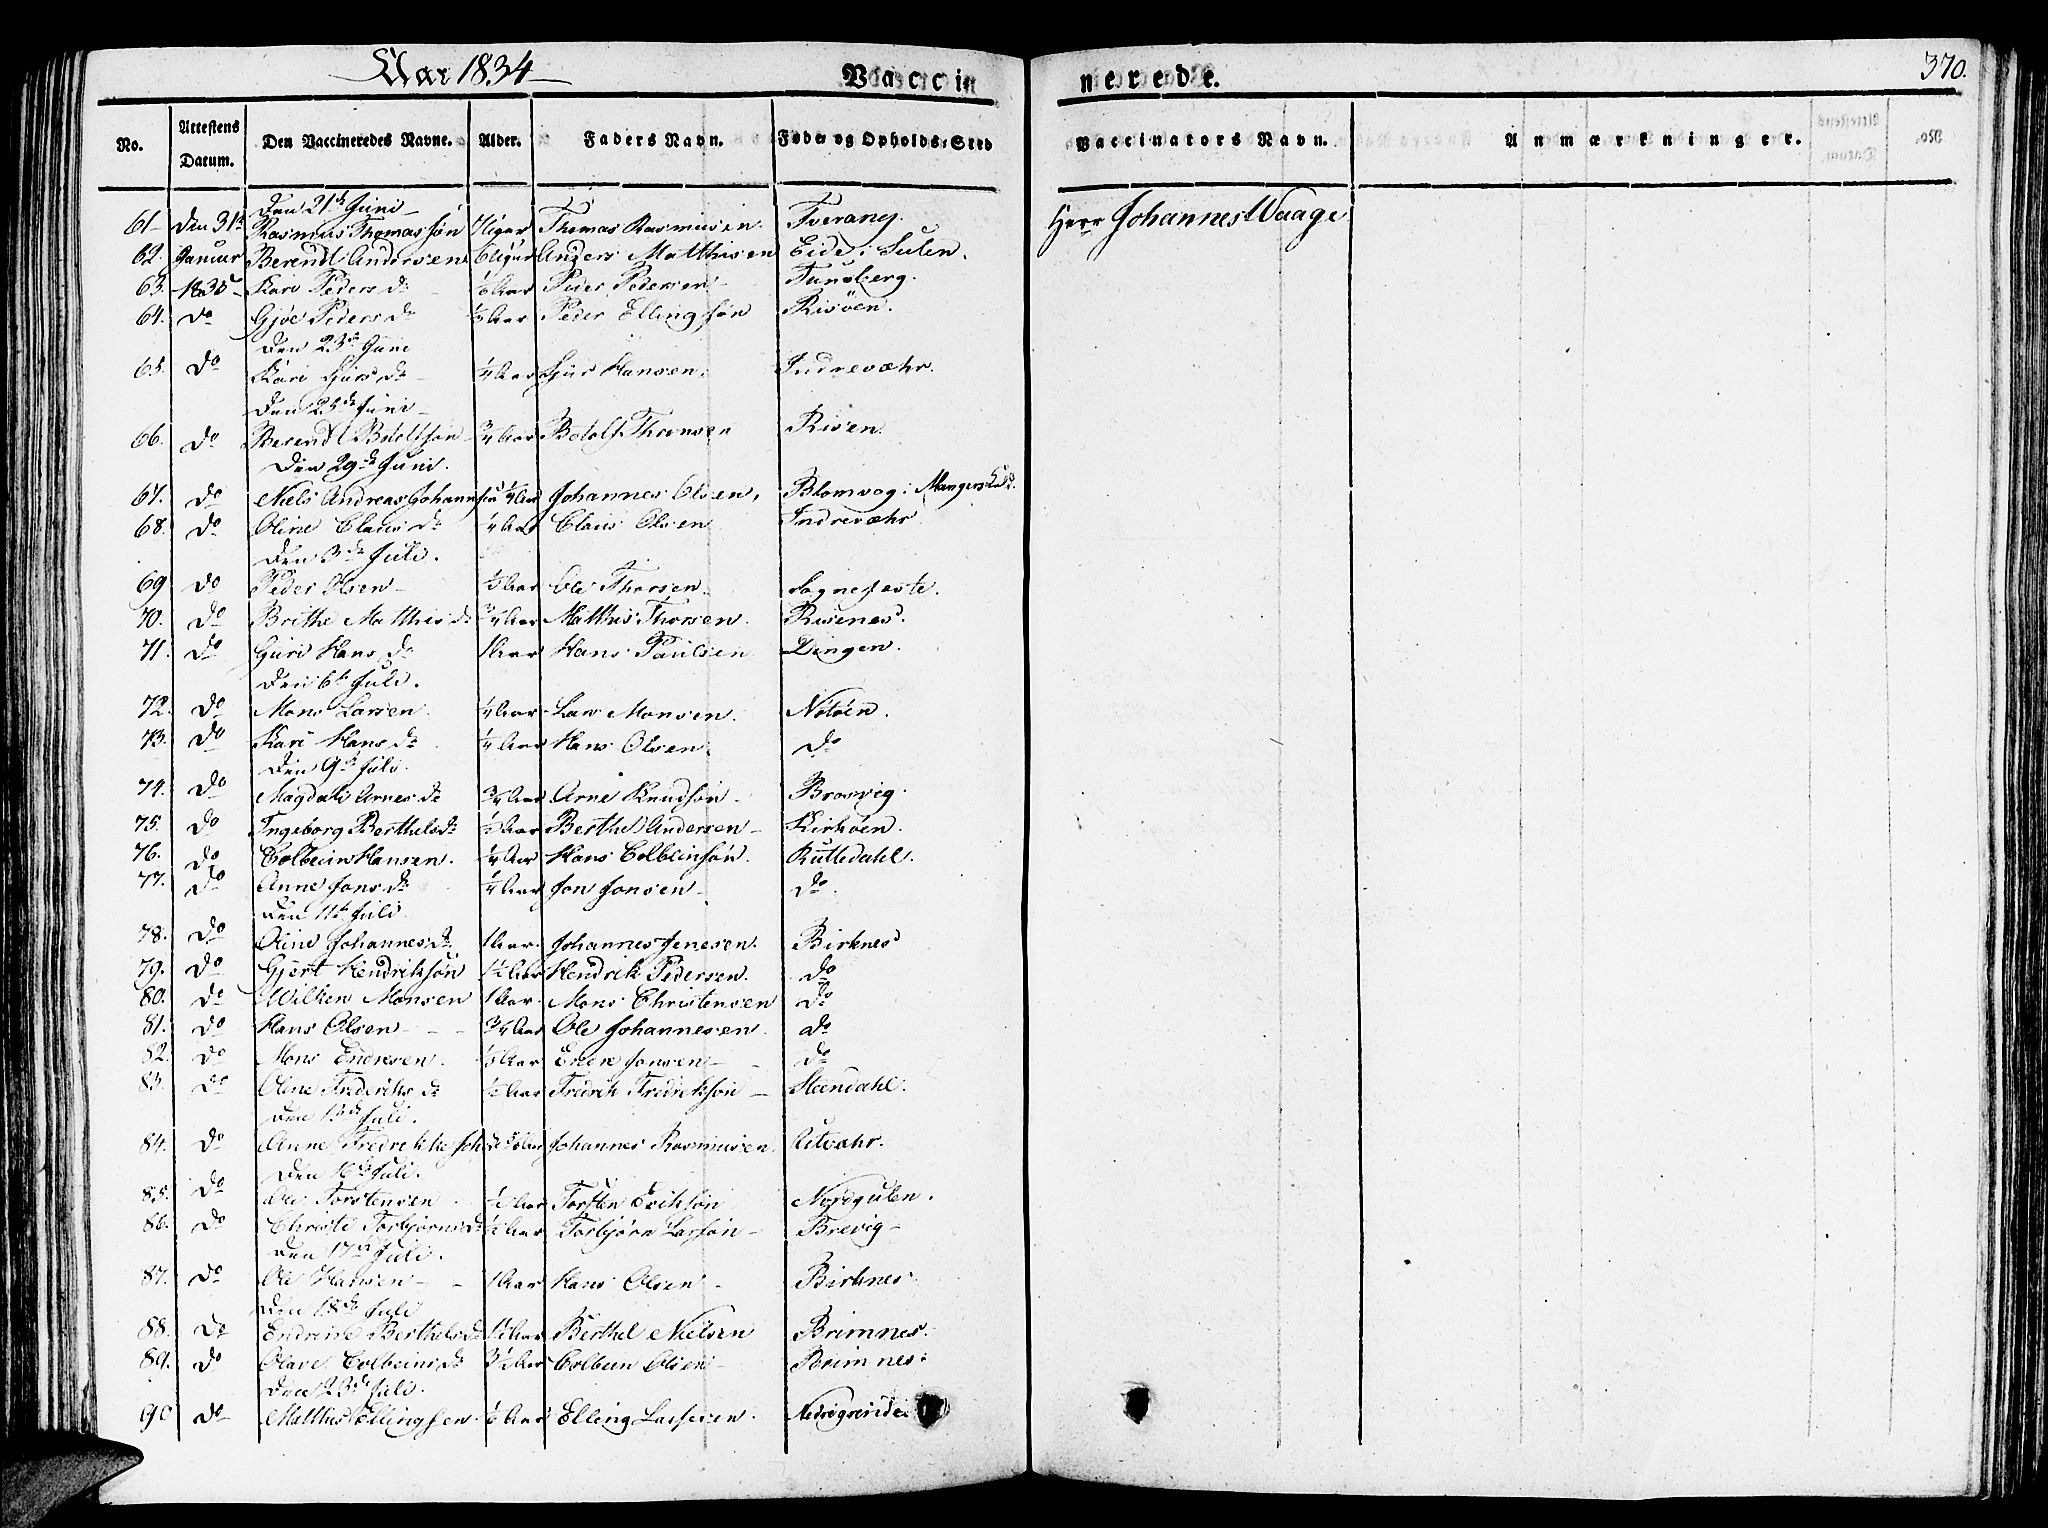 Aar 1834
Vaccinerede.
370.
No. Attestens Datum. Den Vaccineredes Navne. Alder. Faders Navn. Føde- og Opholds-Sted Vaccinators Navn. Anmærkninger.
Den 21de Juni
61 Den 31te Rasmus Thomassøn Thomas Rasmusen Tverang. Herr Johannes Waage
62. Januar Berendt Andersen Anders Matthisen Eide i Sulen.
63. 1835 Kari Peders dr Aar Peder Pedersen Tunsberg.
64. do Gjöe Peders dr Aar Peder Ellingsøn Risöen.
Den 23de Juni
65. do Kari Sjurs dr 1/4 Aar Sjur Hansen. Indrevæhr.
Den 25de Juni
66. do Berendt Botolfsøn 3/4 Aar Botolf Thronsen Risen.
Den 29de Juni.
67. do Niels Andreas Johannsen 1/4 Aar Johannes Olsen, Blomvog i Mangers
68. do Oline Claus dr 1/4 Aar Claus Olsen Indrevæhr
Den 3de Juli.
69 do Peder Olsen 1/2 Aar Ole Thorsen. Sognefeste.
70. do Brithe Matthis dr 3/4 Aar Matthis Thorsen. Risenes.
71. do Guri Hans dr 1 Aar Hans Paulsen Dingen.
Den 6te Juli.
72. do Mons Larsen. 1/4 Aar Lars Monsen. Notöen.
73. do Kari Hans dr 1/4 Aar Hans Olsen. do
Den 9de Juli.
74. do Magdali Arnes dr 3/4 Aar Arne Knudsøn Brosvig.
75. do Ingeborg Berthels dr 1/2 Aar Berthel Andersen Kirköen.
76. do Colbein Hansen. 1/4 Aar Hans Colbeinsøn. Rutledahl.
77. do Anne Jons dr 1/4 Aar Jon Jonsen do.
Den 11te Juli.
78. do Oline Johannes dr 1 Aar. Johannes Jensen. Birknes
79. do Gjert Hendriksøn 1 1/2 Aar Hendrik Pedersen. do
80. do Wilken Monsen 1 Aar. Mons Christensen do
81. do Hans Olsen 3/4 Aar Ole Johannesen do
82. do Mons Endresen. Aar Endre Jonsen do
83. do Oline Frederiks dr 1/2 Aar Fredrik Fredriksøn Steendahl.
Den Juli.
84. do Anne Fredrikke Joh dr Aar Johannes Rasmusen. Utvæhr.
Den 16de Juli.
85. do Ole Torstensen 1/2 Aar Torsten Eriksøn Nordgulen.
86. do Christi Torbjørns dr 1/2 Aar Torbjørn Larsøn Brevig
Den 17de Juli.
87. do Ole Hansen 1 Aar Hans Olsen Birknes
Den 18de Juli
88. do Endrine Berthels dr 1 1/2 Aar Berthel Nielsen Brimnes.
89. do Olave Colbeins dr 3/4 Aar Colbein Olsen Brimnes.
Den 23de Juli.
90 do Matthis Ellingsen. Aar Elling Larsen.